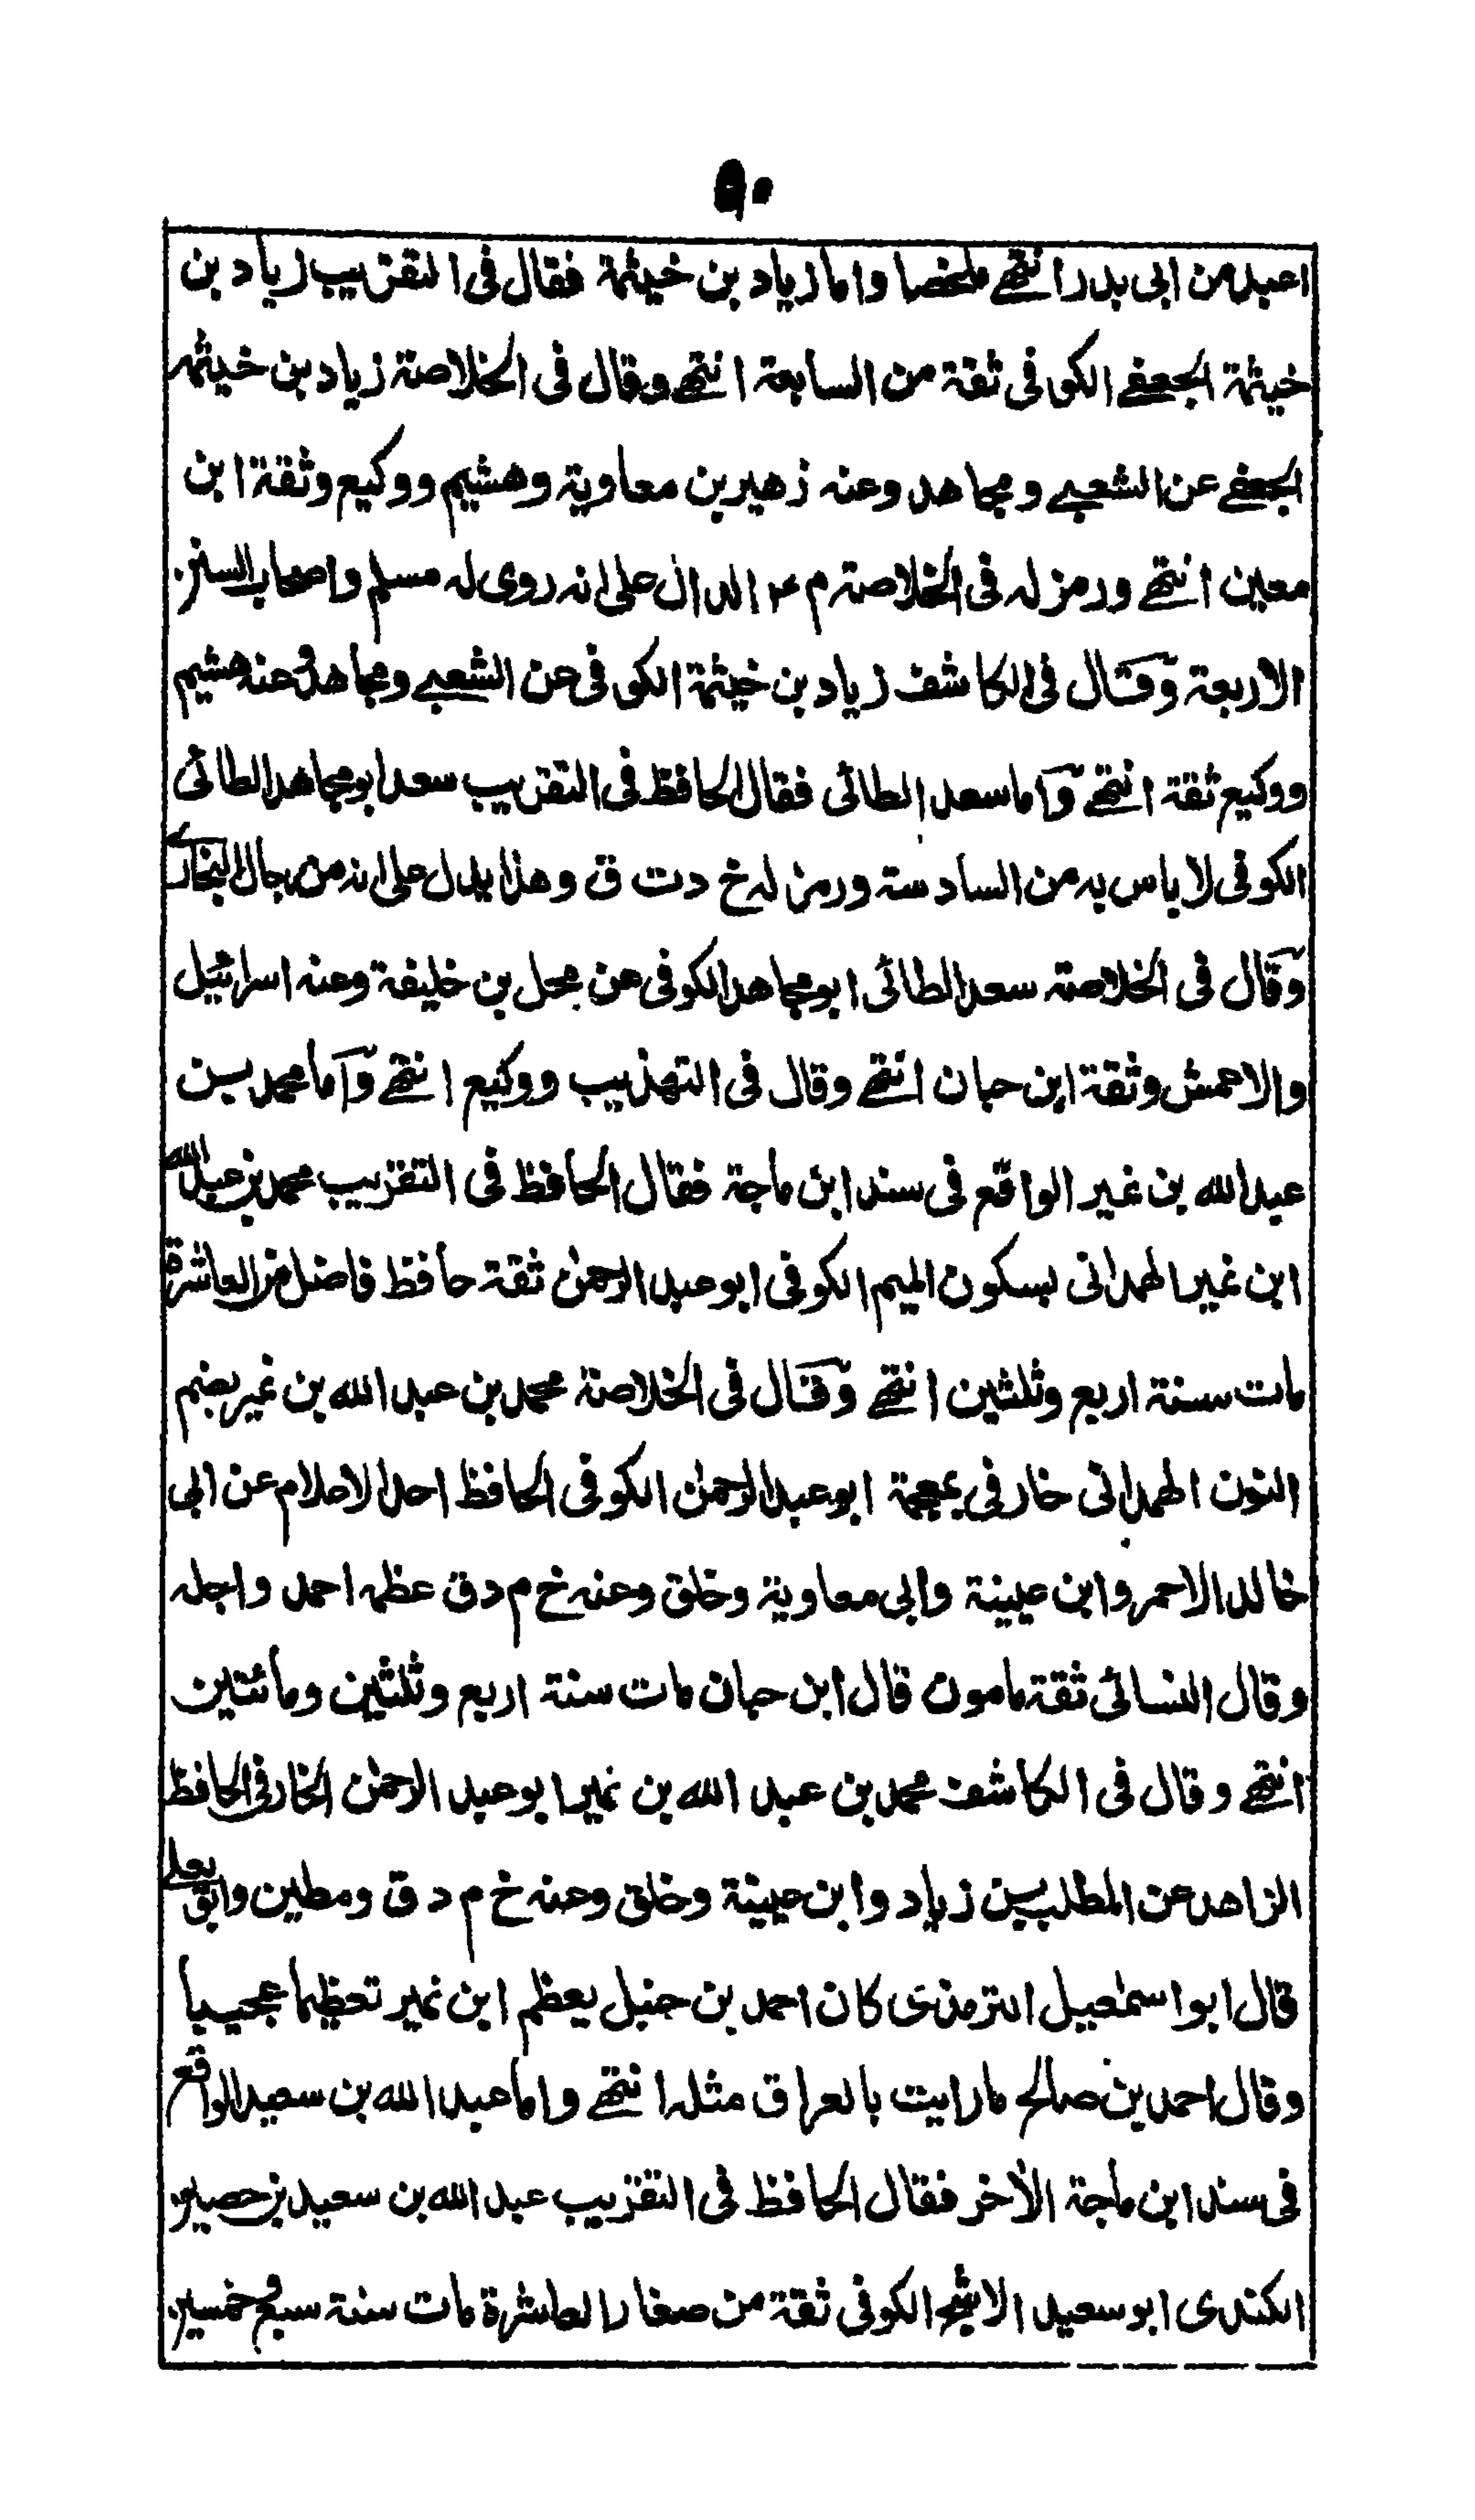 ٩٠
اعبد من ابى بدر انتهى ملخصا واما زياد بن خيثمة فقال فى التقريب زياد بن
خيثمة الجعفے الكوفى ثقة من السابعة انتهى وقال فى الخلاصة زياد بن خيثمه
الجعفے عن الشعبے ومجاهد وعنه زهير بن معاوية وهشيم ووكيع وثقة ابن
معين انتهى ورمز له فى الخلاصة م ٤ الدال على انه روى له مسلم واصحاب السنن
الاربعة وقال فى الكاشف زياد بن خيثمة الكوفى عن الشعبے ومجاهد وعنه هشيم
ووكيع ثقة انتهى واما سعد الطائى فقال الحافظ فى التقريب سعد ابو مجاهد الطائى
الكوفى لا باس به من السادسة ورمز له خ د ت ق وهذا يدل على انه من رجال البخارى
وقال فى الخلاصة سعد الطائى ابو مجاهد الكوفى عن محل بن خليفة وعنه اسرائيل
والاعمش وثقة ابن حبان انتهى وقال فى التهذيب ووكيع انتهى واما محمد بن
عبد الله بن نمير الواقع فى سند ابن ماجة فقال الحافظ فى التقريب محمد بن عبد الله
ابن نمير الهمدانى بسكون الميم الكوفى ابو عبد الرحمن ثقة حافظ فاضل من العاشرة
مات سنة اربع وثلثين انتهى وقال فى الخلاصة محمد بن عبد الله بن نمير بضم
النون الهمدانى خارفى بمعجمة ابو عبد الرحمن الكوفى الحافظ احد الاعلام عن ابى
خالد الاحمر وابن عيينة وابى معاوية وخلق وعنه خ م د ق عظمه احمد واجله
وقال النسائى ثقة مامون قال ابن حبان مات سنة اربع وثلثين ومائتين
انتهى وقال فى الكاشف محمد بن عبد الله بن نمير ابو عبد الرحمن الخارفى الحافظ
الزاهد عن المطلب بن زياد وابن عيينة وخلق وعنه خ م د ق ومطين وابو يعلى
قال ابو اسمعيل الترمذى كان احمد بن حنبل يعظم ابن نمير تعظيما عجيبا
وقال احمد بن صالح ما رايت بالعراق مثله انتهى واما عبد الله بن سعيد الواقع
فى سند ابن ماجة الآخر فقال الحافظ فى التقريب عبد الله بن سعيد بن حصين
الكندى ابو سعيد الاشج الكوفى ثقة من صغار العاشرة مات سنة سبع وخمسين